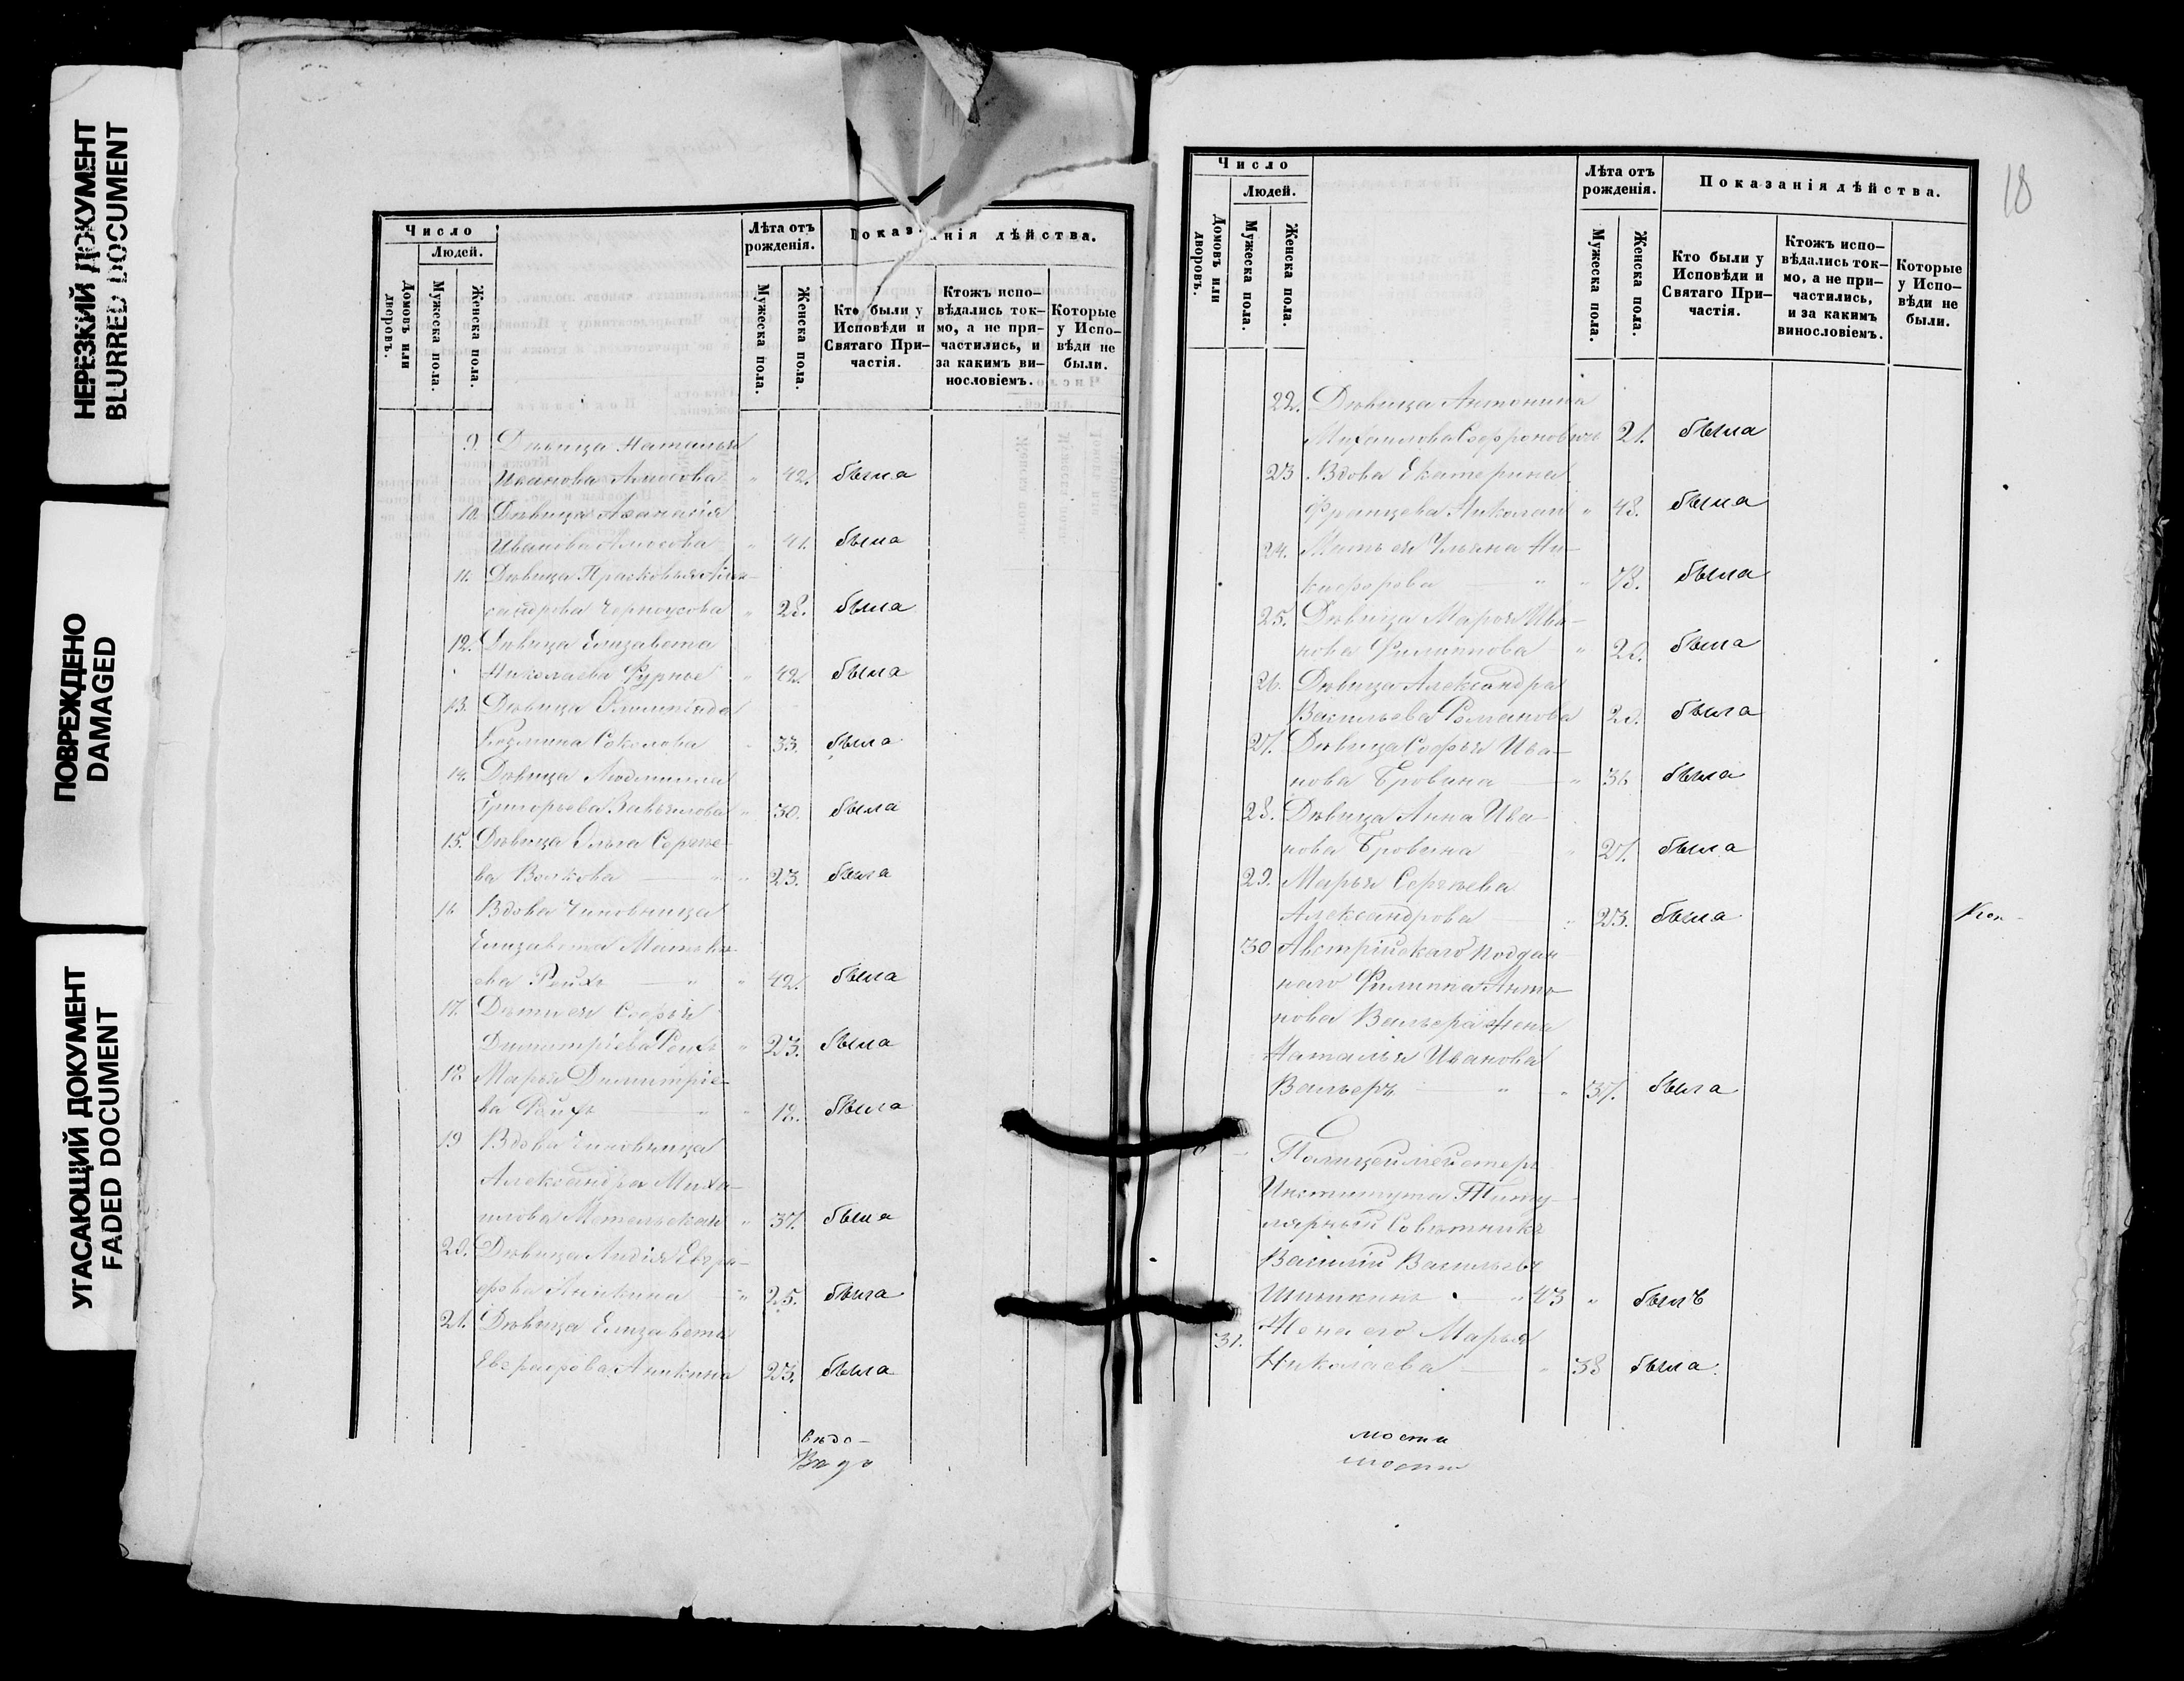 НЕРЕЗКИЙ ДОКУМЕНТ
BLURRED DOCUMENT
ПОВРЕЖДЕНО
DAMAGED
УГАСАЮЩИЙ ДОКУМЕНТ
FADED DOCUMENT
Число
Людей.
Домовъ или дворовъ.
Мужеска пола.
Женска пола.
Лѣта отъ рожденія.
Мужеска пола.
Женска пола.
Показанія дѣйства.
Кто были у Исповѣди и Святаго При-
частія.
Ктожъ испо-
вѣдались ток-
мо, а не при-
частились, и
за какимъ ви-
нословіемъ.
Которые
у Испо-
вѣди не
были.
9. Дѣвица Наталья
Иванова Амосова " 42. была
10. Дѣвица
Иванова Амосова " 41. была
11. Дѣвица Прасковья Алек-
сандрова Черноусова " 28. была
12. Дѣвица Елизавета
Николаева Фурнье " 42. была
13. Дѣвица Олимпіада
Козмина Соколова " 33. была
14. Дѣвица Людмилла
Григорьева " 30. была
15. Дѣвица Ольга Сергѣе-
ва Волкова " " 23. была
16 Вдова Чиновница
Елизавета Матвѣе-
ва Рейхъ " " 42. была
17. Дѣти ея Софья
Димитріева Рейхъ " 23. была
18 Марья Димитріе-
ва Рейхъ " " 12. была
19 Вдова Чиновница
Александра Миха-
илова " 37. была
20. Дѣвица Лидія Евгра-
фова Аникина " 25. была
21. Дѣвица Елизавета
Евграфова Аникина 23. была
вѣдо-
Вѣдо
18
Число
Людей.
Домовъ или дворовъ.
Мужеска пола.
Женска пола.
Лѣта отъ
рожденія.
Мужеска пола.
Женска пола.
Показанія дѣйства.
Кто были у
Исповѣди и
Святаго При-
частія.
Ктожъ испо-
вѣдались ток-
мо, а не при-
частились,
и за какимъ
винословіемъ.
Которые
у Испо-
вѣди не
были.
22. Дѣвица Антонина
Михаилова Софроновичъ 21. была
23 Вдова Екатерина
Францева " 48. была
24. Мать ея Ульяна Ни-
кифорова " " 78. была
25. Дѣвица Марья Ива-
нова Филиппова " 20. была
26. Дѣвица Александра
Васильева Романова 20. была
27. Дѣвица Софья Ива-
нова Бровина " 31. была
28. Дѣвица Анна Ива-
нова Бровина " 27. была
29. Марья Сергѣева
Александрова " 23. была
30 Австрійскаго поддан-
наго Филиппа Анто-
нова Вальера жена
Наталья Иванова
Вальеръ " " 37. была
Полицеймейстеръ
Института Титу-
лярный Совѣтникъ
Василій Васильевъ
Шишкинъ " 43 " былъ
31. Жена его Марья
Николаева " 38 была.
мости
мости